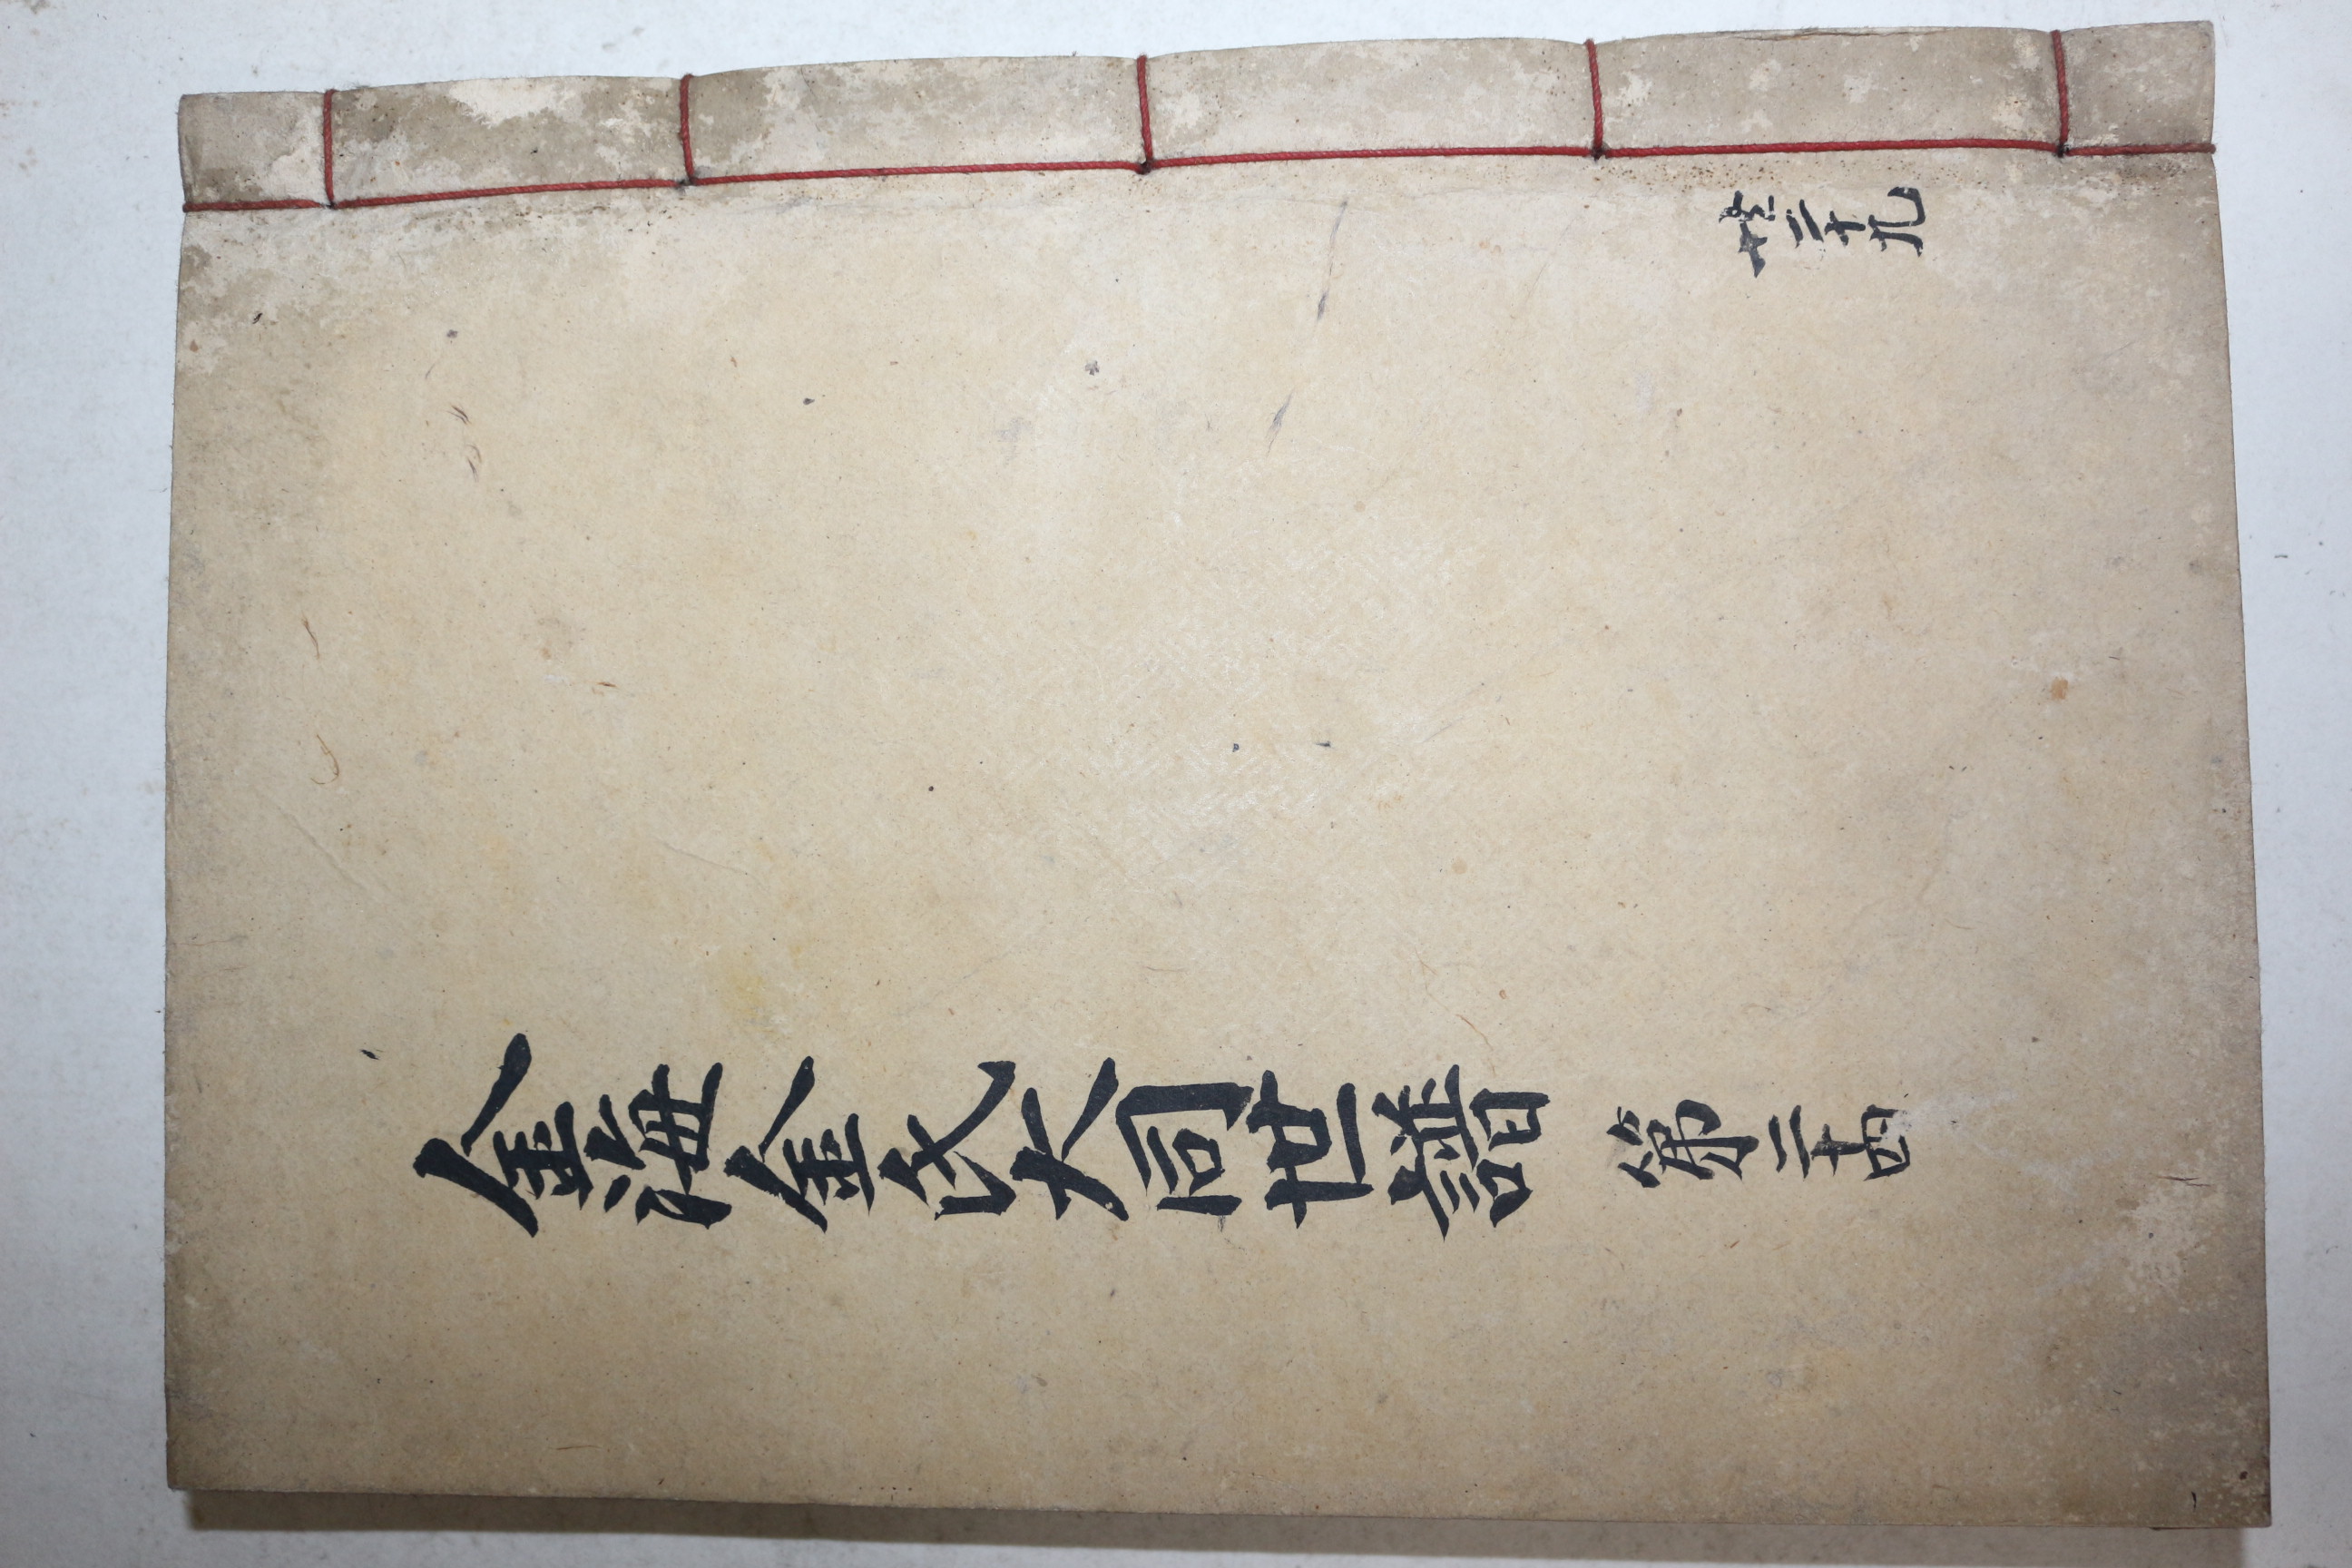 金海金氏大同世譜 第二十四
共二十九